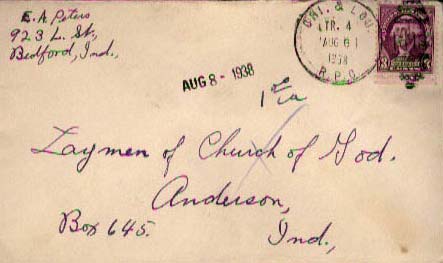 E. A. Peters
923 L. St.,
Bedford, Ind.,
CHI. & LOU.
TR. 4
AUG 6
1938
R.P.O.
AUG 8 - 1938
Laymen of Church of God.
Anderson,
Box 645.
Ind.,